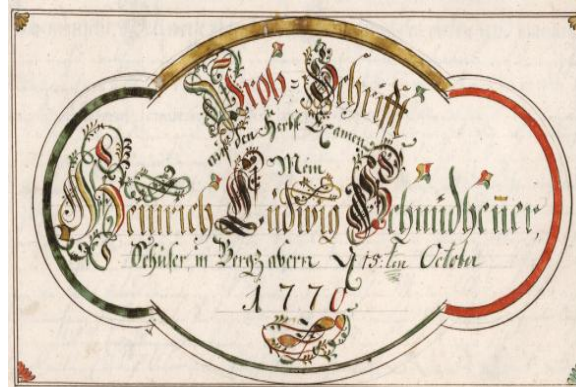 Prob-Schrifft
auf den Herbst Examen
Mein
Heinrich Ludwig Schmidheüer,
Schüler, in Bergzabern 15:ten October
1770.